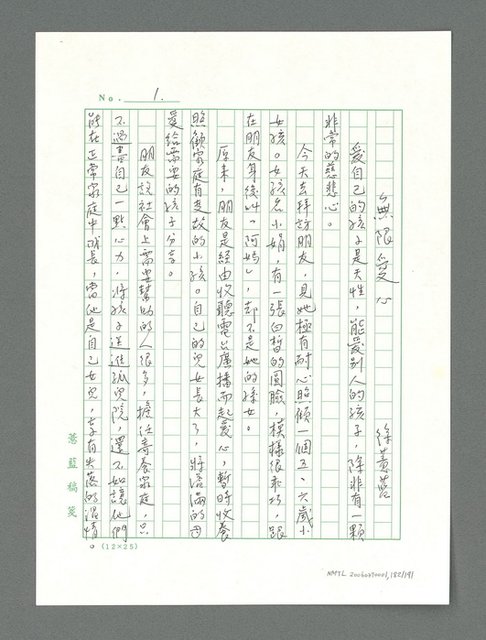 No. 1.
無限愛心
徐薏藍
愛自己的孩子是天性，能愛別人的孩子，除非有一顆
非常的慈悲心。
今天去拜訪朋友，見她極有耐心照顧一個五、六歲小
女孩。女孩名小娟，有一張白皙的圓臉，模樣很乖巧，跟
在朋友身後叫「阿媽」，却不是她的孫女。
原來，朋友是經由收聽電台廣播而起愛心，暫時收養
照顧家庭有變故的小孩。自己的兒女長大了，將滿滿的母
愛給需要的孩子分享。
朋友說社會上需要幫助的人很多，擔任寄養家庭，只
不過盡自己一點心力，將孩子送進孤兒院，還不如讓他們
能在正常家庭中成長，當他是自己女兒，享有失落的溫情。
薏藍稿箋
(12×25)
NMTL 20060270001,182/191